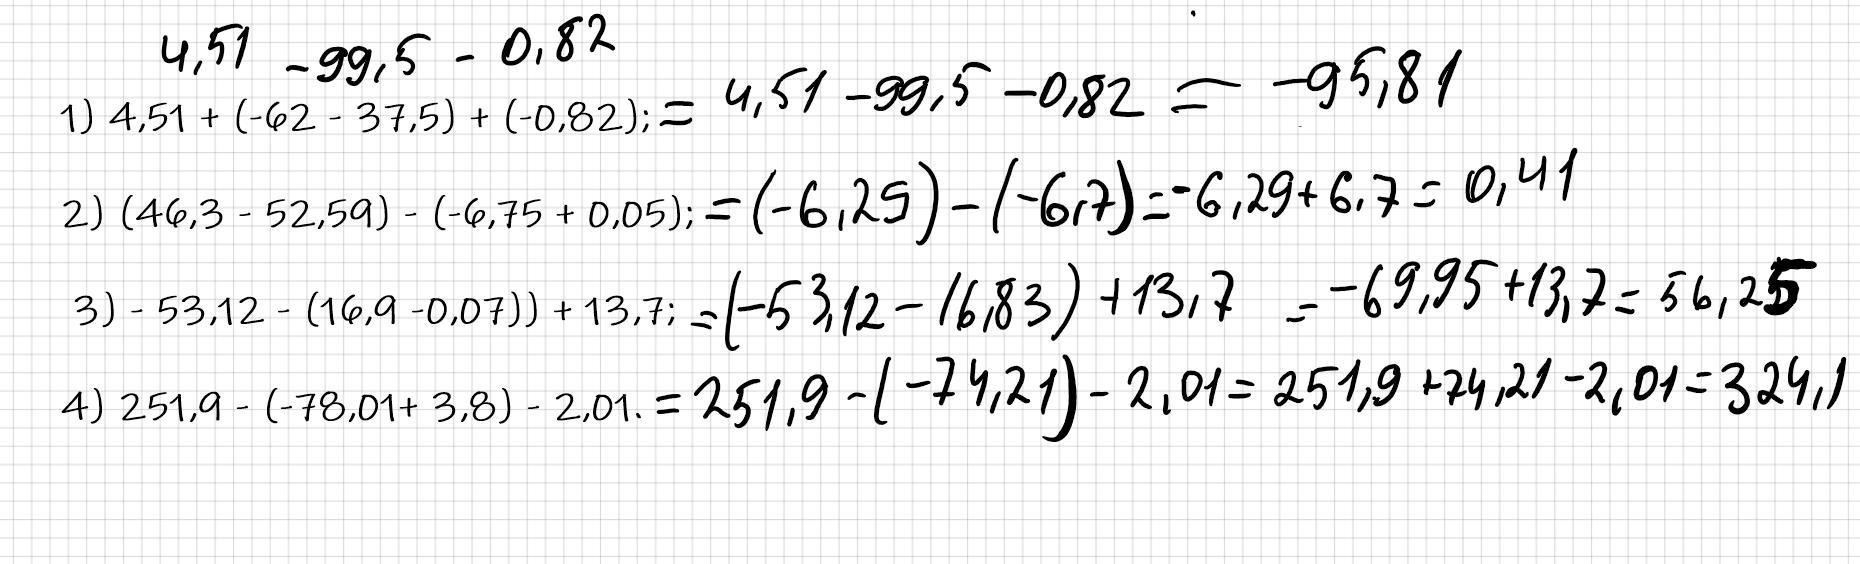 4,51 - 99,5 - 0,82
1) 4,51 + (-62 - 37,5) + (-0,82); = 4,51 - 99,5 - 0,82 = -95,81
2) (46,3 - 52,59) - (-6,75 + 0,05); = (-6,29) - (-6,7) = -6,29 + 6,7 = 0,41
3) - 53,12 - (16,9 -0,07)) + 13,7; = (-53,12 - 16,83) + 13,7 = -69,95 + 13,7 = 56,25
4) 251,9 - (-78,01+ 3,8) - 2,01. = 251,9 - (-74,21) - 2,01 = 251,9 + 74,21 - 2,01 = 324,1